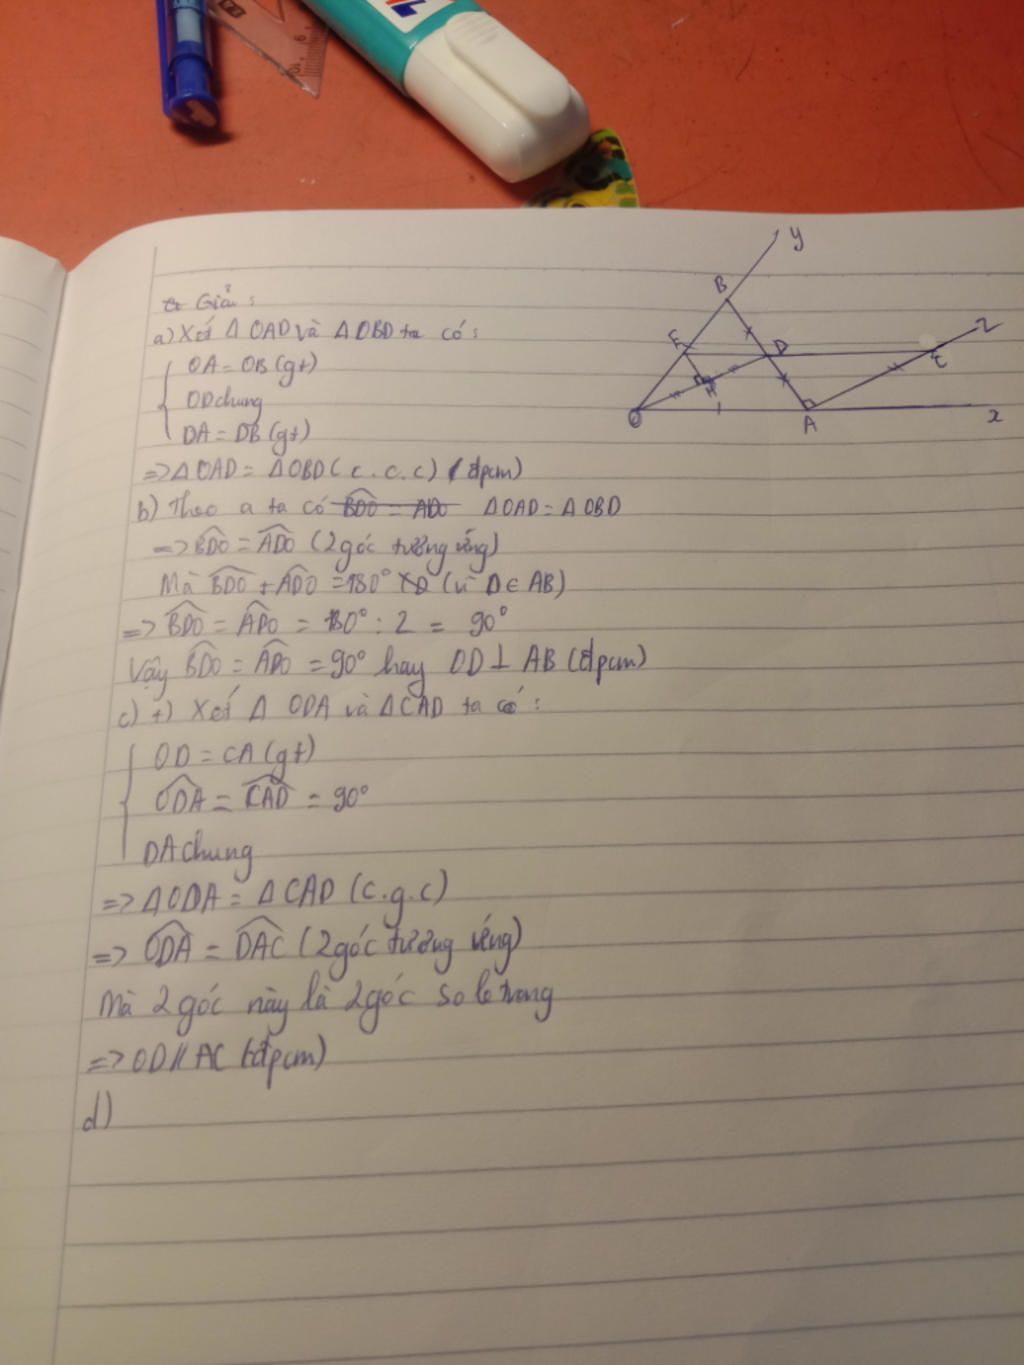 Giải:
a) Xét Δ OAD và Δ OBD ta có:
OA = OB (gt)
OD chung
DA = DB (gt)
=> Δ OAD = Δ OBD (c.c.c) (đpcm)
b) Theo a ta có BDO = ADO Δ OAD = Δ OBD
=> BDO = ADO (2 góc tương ứng)
Mà BDO + ADO = 180° (vì D ∈ AB)
=> BDO = ADO = 180° : 2 = 90°
Vậy BDO = ADO = 90° hay OD ⊥ AB (đpcm)
c) +) Xét Δ ODA và Δ CAD ta có:
OD = CA (gt)
ODA = CAD = 90°
DA chung
=> Δ ODA = Δ CAD (c.g.c)
=> ODA = DAC (2 góc tương ứng)
Mà 2 góc này là 2 góc so le trong
=> OD // AC (đpcm)
d)
y
B
E
D
z
C
H
O
A
x